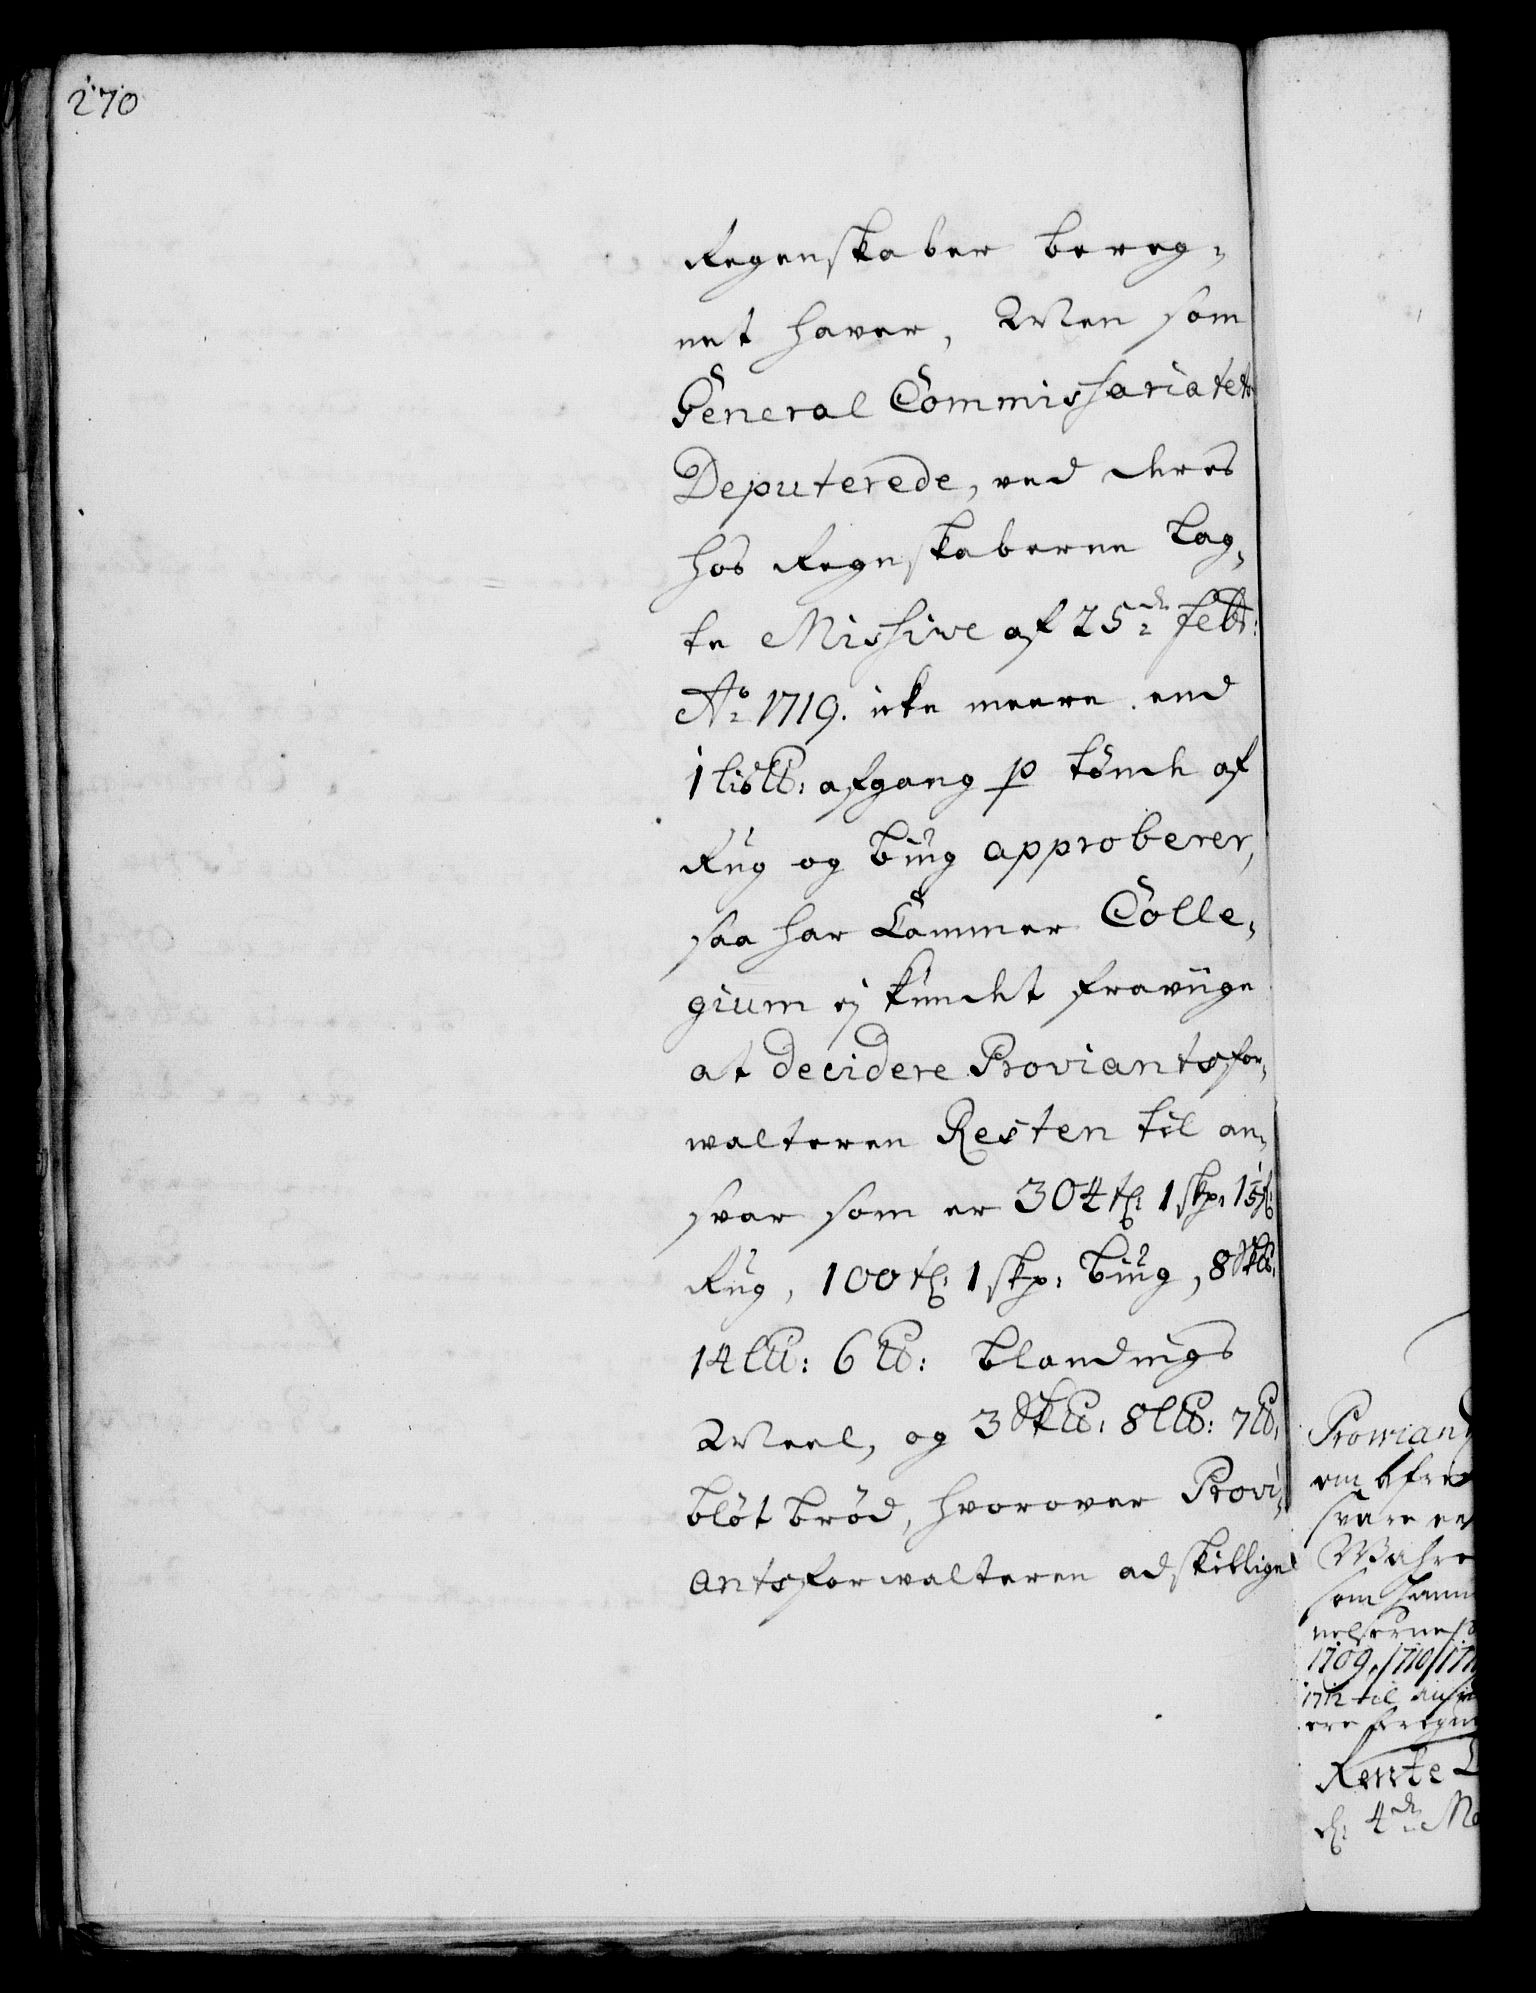 270
Regenskaber bereg-
net haver, Men som
General Commissariatets
Deputerede, ved deres
hos Regnskaberne lag-
te Missive af 25de Febr:
Ao 1719. icke meere end
1 lis℔: afgang p tønde af
Rug og biug approberer,
saa har Cammer Colle-
gium ej kundet fraviige
at decidere Proviantsfor-
walteren Resten til an-
svar som er 304 tr: 1 skp: 1
Rug, 100 tr: 1 skp: biug, 8 Sk℔:
14 L℔: 6 ℔: blandings
Meel, og 3 Sk℔: 8 L℔: 7 ℔:
bløt brød, hvorover Provi-
antsforwalteren adskillige
Proviant
om
svare
som
1709, 1710, 171
1712 til
Rente
d: 4de